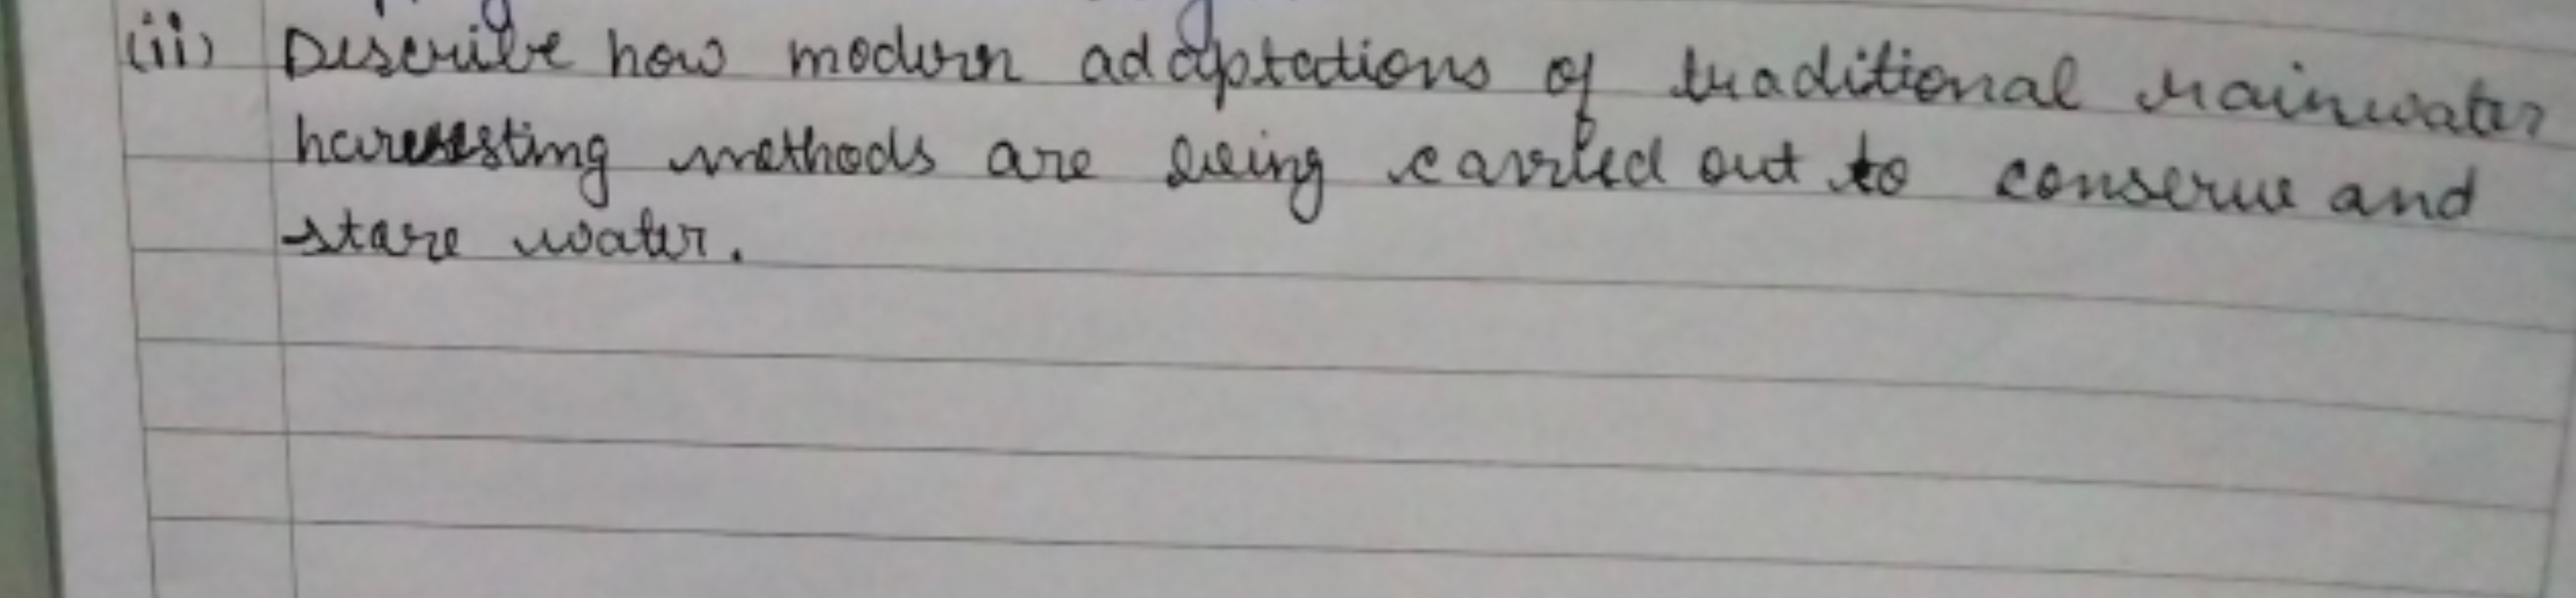 (ii) Describe how modern adaptations of traditional rainwater
harvesting methods are being carried out to conserve and
store water.